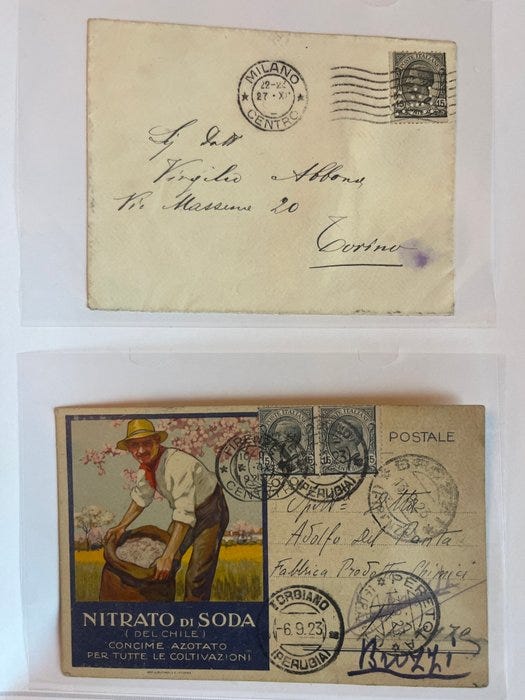 MILANO
22-23
27·XI
CENTRO
POSTE ITALIANE
15 15
Virgilio Abbona
Via Massena 20
Torino
FIRENZE
CENTRO
POSTE ITALIANE
POSTE ITALIANE
15
15
(PERUGIA)
POSTALE
Spett= Ditta
Adolfo Del Panta
Fabbrica Prodotti Chimici
TORGIANO
-6.9.23
(PERUGIA)
Brozzi
NITRATO DI SODA
(DEL CHILE)
CONCIME AZOTATO
PER TUTTE LE COLTIVAZIONI